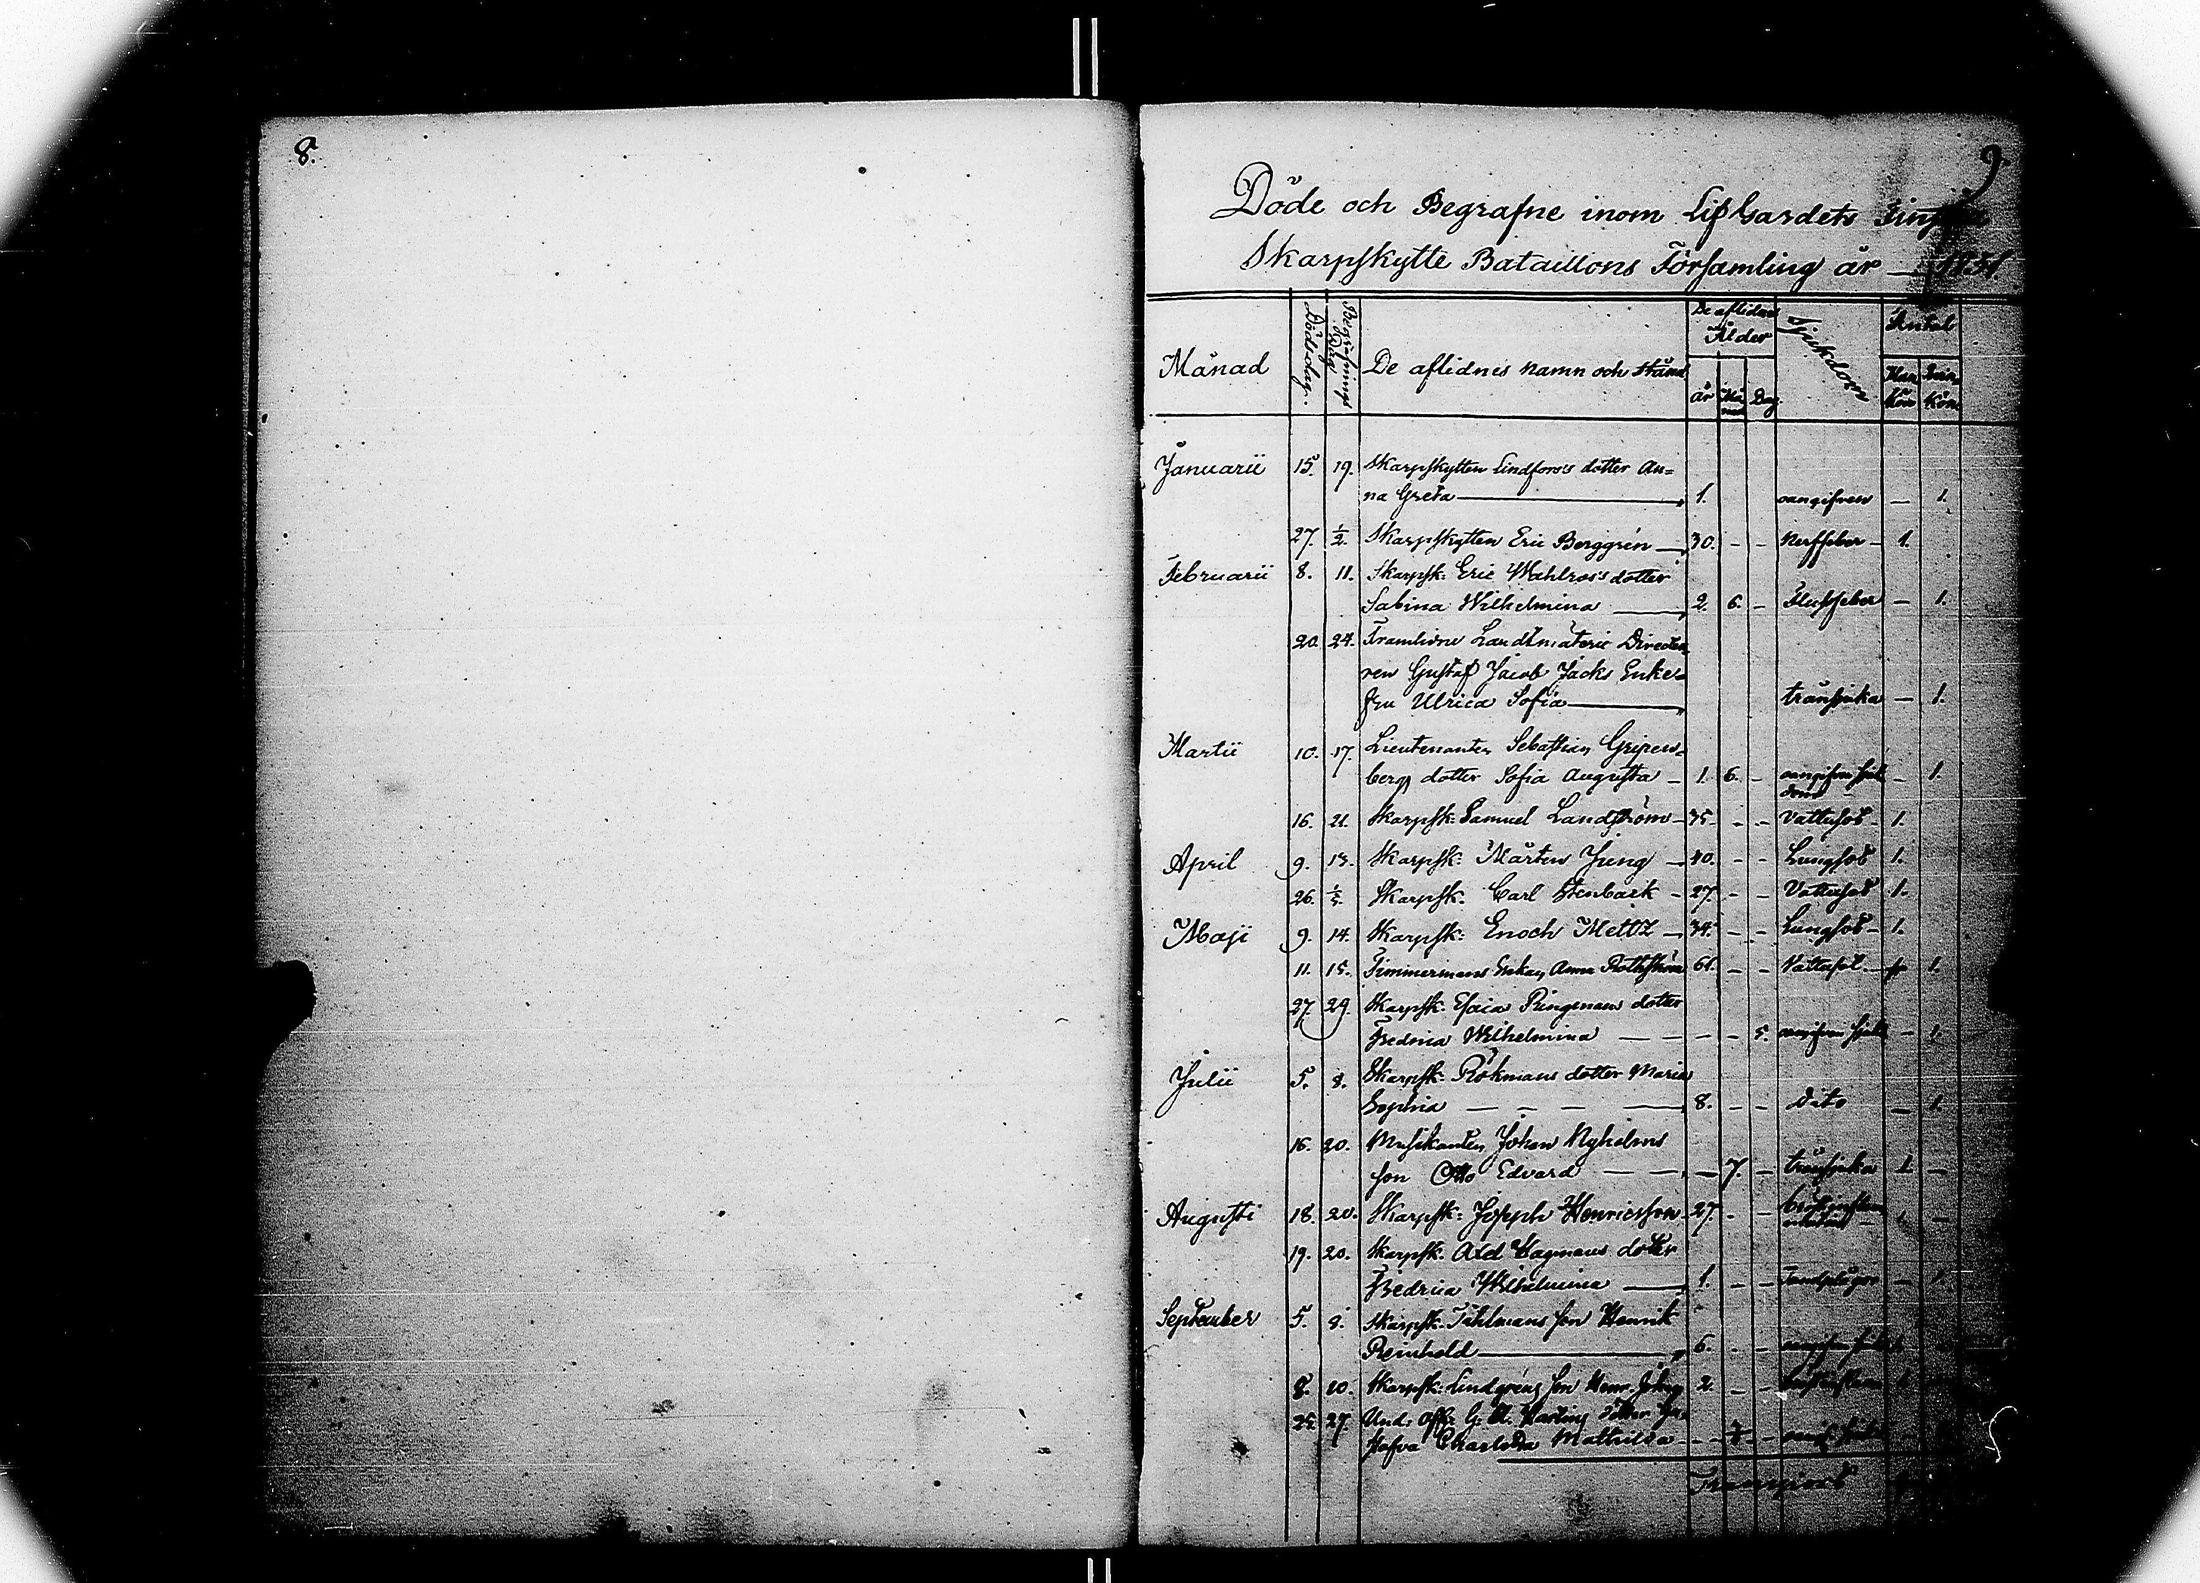 8.
9.
Döde och Begrafne inom Lif Gardets Finska
Skarpskytte Bataillons Församling år — 1831
Månad Dödsdag. Begrafnings Dag De aflidnes namn och stånd De aflidnes Ålder Sjukdom Antal
år Må-nad Dag Man Kön Qvin-Kön
Januarii 15. 19. Skarpskytten Lindfors's dotter An=
na Greta — 1. oangifven — 1.
27. 1/2. Skarpskytten Eric Berggrén — 30. - - Nerffeber - 1.
Februarii 8. 11. Skarpsk: Eric Wahlros's dotter
Sabina Wilhelmina — 2. 6. - Flussfeber — 1.
20. 24. Framlidne Landtmäterie Directeu-
ren Gustaf Jacob Jacks Enke=
fru Ulrica Sofia — tränsjuka — 1.
Martii 10. 17. Lieutenanten Sebastian Gripen=
bergs dotter Sofia Augusta — 1. 6. - oangifven sjuk
dom — 1.
16. 21. Skarpsk: Samuel Landström - 35. - - Vattusot - 1.
April 9. 13. Skarpsk: Mårten Jung — 40. - - Lungsot 1.
26. 1/5. Skarpsk. Carl Stenback - 27. - - Vattusot 1.
Maji 9. 14. Skarpsk: Enoch Mettz — 34. - - Lungsot - 1.
11. 15. Timmermans Enkan Anna 61. - - Vattusot — 1.
27. 29. Skarpsk: Esaia Ringmans dotter
Fredrica Wilhelmina — — — — 5. oangifven sjukd — 1.
Julii 5. 8. Skarpsk: Rökmans dotter Maria
Sophia — — — — 8. - - Dito — 1.
16. 20. Musikanten Johan Nyholms
son Otto Edvard — — — 7. - tränsjuka 1. —
Augusti 18. 20. Skarpsk: Joseph Henricsson - 27. - -
19. 20. Skarpsk. Axel Hagmans dotter
Fredrica Wilhelmina — 1. - - Tandplågor — 1.
September 5. 8. Skarpsk. Tåhlmans son Henrik
Reinhold — 6. - -
8. 10. Skarpsk: Lindgréns son Henr. Johan 2. - -
25. 27. Und: Off: G: A. Harlings dotter Gu=
stafva Charlotta Mathilda - - 7. -
Transport